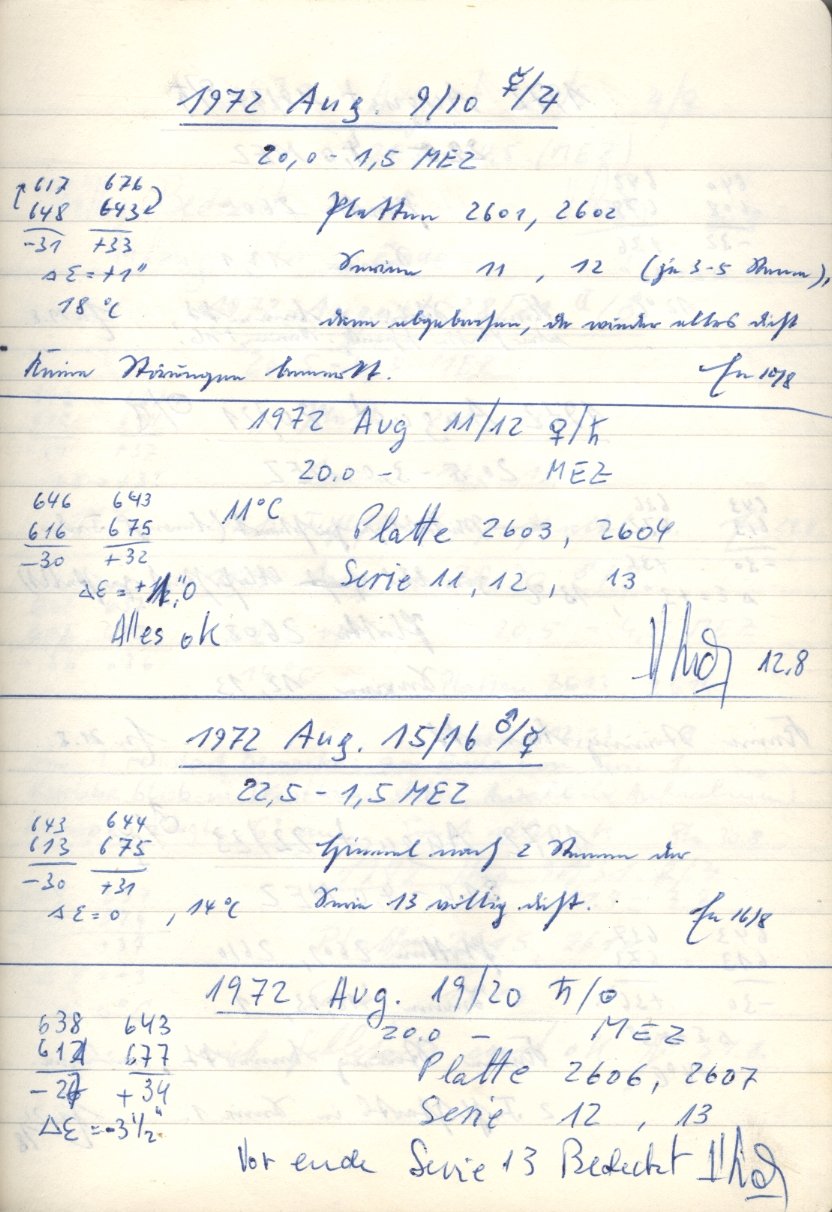 1972 Aug. 9/10 ☿/♃
20,0 - 1,5 MEZ
617 676
648 643
-31 +33
Platten 2601, 2602
Serien 11, 12 (je 3-5 Sterne),
Δε = +1"
18 °C
dann abgebrochen, da wieder alles dicht
Keine Störungen bemerkt. 10/8
1972 Aug 11/12 ♀/♄
20.0 - MEZ
646 643 11°C
616 675
-30 +32
Platte 2603, 2604
Serie 11, 12, 13
Δε = +1",0
Alles ok
12.8
1972 Aug. 15/16 ♂/☿
22,5 - 1,5 MEZ
643 644
613 675
-30 +31
Himmel nach 2 Sternen der
Δε = 0, 14°C Serie 13 völlig dicht. 16/8
1972 Aug. 19/20 ♄/☉
20.0 - MEZ
638 643
677
+34
Platte 2606, 2607
Serie 12, 13
Δε = -3 1/2"
Vor ende Serie 13 Bedeckt